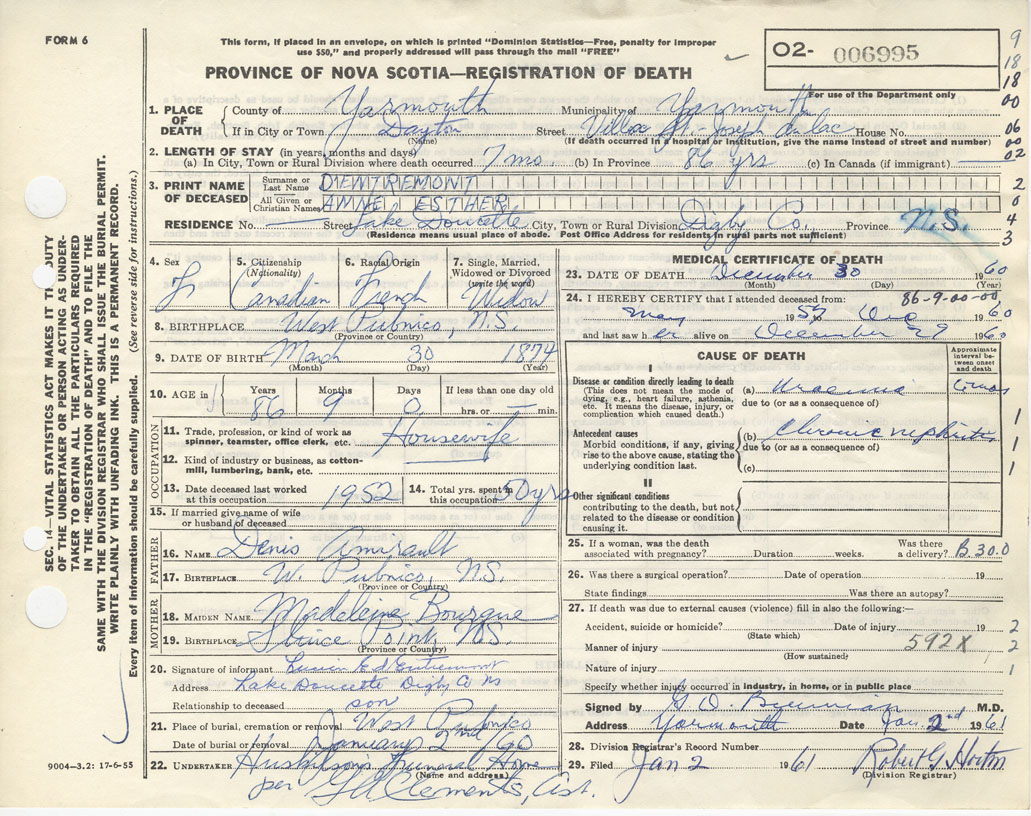 FORM 6
This form, if placed in an envelope, on which is printed "Dominion Statistics—Free, penalty for improper
use $50," and properly addressed will pass through the mail "FREE"
O2- 006995
9
18
18
For use of the Department only
PROVINCE OF NOVA SCOTIA—REGISTRATION OF DEATH
00
1. PLACE OF DEATH County of Yarmouth Municipality of Yarmouth
If in City or Town Dayton Street Villa St-Joseph du lac House No.
(Name) (If death occurred in a hospital or institution, give the name instead of street and number)
06
00
02
2. LENGTH OF STAY (in years, months and days)
(a) In City, Town or Rural Division where death occurred 7 mo. (b) In Province 86 yrs (c) In Canada (if immigrant)
3. PRINT NAME OF DECEASED Surname or Last Name D'ENTREMONT
All Given or Christian Names ANNE ESTHER
2
0
4
3
RESIDENCE No. Street Lake Doucette City, Town or Rural Division Digby Co. Province N.S.
(Residence means usual place of abode. Post Office Address for residents in rural parts not sufficient)
4. Sex F
5. Citizenship (Nationality) Canadian
6. Racial Origin French
7. Single, Married, Widowed or Divorced (write the word) Widow
8. BIRTHPLACE West Pubnico, N.S.
(Province or Country)
9. DATE OF BIRTH March 30 1874
(Month) (Day) (Year)
10. AGE in Years 86 Months 9 Days 0 If less than one day old hrs. or min.
OCCUPATION
11. Trade, profession, or kind of work as spinner, teamster, office clerk, etc. Housewife
12. Kind of industry or business, as cotton-mill, lumbering, bank, etc.
13. Date deceased last worked at this occupation 1952
14. Total yrs. spent in this occupation 50 yrs
15. If married give name of wife or husband of deceased
FATHER
16. NAME Denis Amirault
17. BIRTHPLACE W. Pubnico, N.S.
(Province or Country)
MOTHER
18. MAIDEN NAME Madeleine Bourque
19. BIRTHPLACE Sluice Point, N.S.
(Province or Country)
20. Signature of informant Lucien Ed Entremont
Address Lake Doucette Digby Co NS
Relationship to deceased son
21. Place of burial, cremation or removal West Pubnico
Date of burial or removal January 2nd /60
22. UNDERTAKER Huskilson's Funeral Home
(Name and address)
per Clements, Ast.
MEDICAL CERTIFICATE OF DEATH
23. DATE OF DEATH December 30 1960
(Month) (Day) (Year)
24. I HEREBY CERTIFY that I attended deceased from: 86-9-00-00
May 1957 to Dec 1960
and last saw her alive on December 29 1960
CAUSE OF DEATH
Approximate interval between onset and death
I
Disease or condition directly leading to death
(This does not mean the mode of dying, e.g., heart failure, asthenia, etc. It means the disease, injury, or complication which caused death.)
(a) Uraemia
due to (or as a consequence of)
Antecedent causes
Morbid conditions, if any, giving rise to the above cause, stating the underlying condition last.
(b) Chronic nephritis
due to (or as a consequence of)
(c)
1
1
1
II
Other significant conditions
contributing to the death, but not related to the disease or condition causing it.
25. If a woman, was the death associated with pregnancy? Duration weeks. Was there a delivery? B.30.0
26. Was there a surgical operation? Date of operation 19
State findings Was there an autopsy?
27. If death was due to external causes (violence) fill in also the following:—
Accident, suicide or homicide? Date of injury 19 2
(State which)
Manner of injury 592X 2
(How sustained)
Nature of injury 1
Specify whether injury occurred in industry, in home, or in public place
Signed by M.D.
Address Yarmouth Date Jan. 2nd 1961
28. Division Registrar's Record Number
29. Filed Jan 2 1961 Robert G. Horton
(Division Registrar)
VITAL STATISTICS ACT MAKES IT DUTY
OF THE UNDERTAKER OR PERSON ACTING AS UNDER-
TAKER TO OBTAIN ALL THE PARTICULARS REQUIRED
IN THE "REGISTRATION OF DEATH" AND TO FILE THE
SAME WITH THE DIVISION REGISTRAR WHO SHALL ISSUE THE BURIAL PERMIT.
WRITE PLAINLY WITH UNFADING INK. THIS IS A PERMANENT RECORD.
Every item of information should be carefully supplied. (See reverse side for instructions.)
9004—3.2: 17-6-55